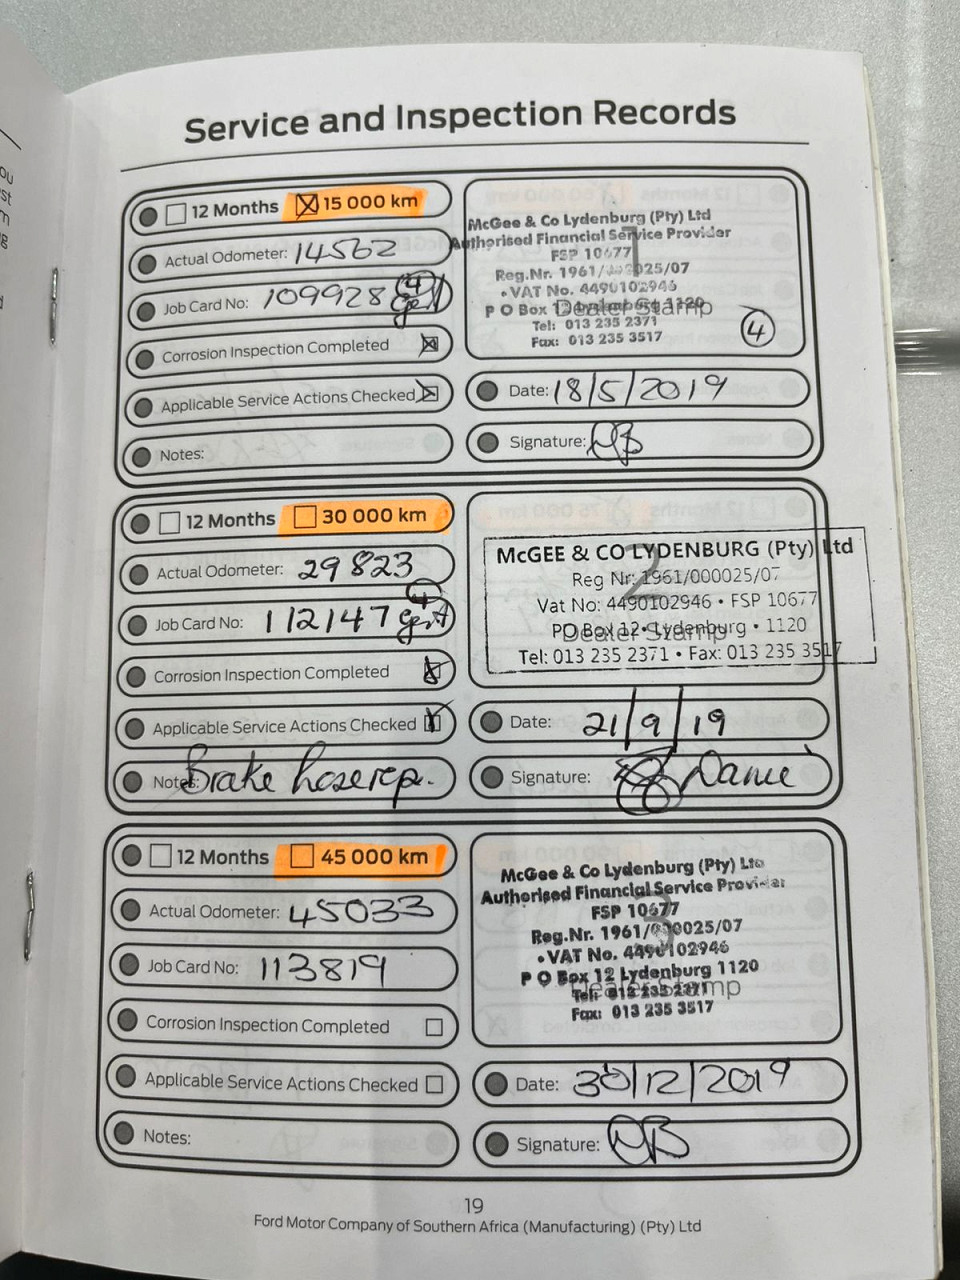 Service and Inspection Records
12 Months 15 000 km
Actual Odometer: 14562
Job Card No: 109928
Corrosion Inspection Completed
Applicable Service Actions Checked
Notes:
McGee & Co Lydenburg (Pty) Ltd
Authorised Financial Service Provider
FSP 10677
Reg.Nr. 1961/000025/07
• VAT No. 4490102946
P O Box 12 Lydenburg 1120
Dealer Stamp
Tel: 013 235 2371
Fax: 013 235 3517
4
Date: 18/5/2019
Signature:
12 Months 30 000 km
Actual Odometer: 29823
Job Card No: 112147
Corrosion Inspection Completed
Applicable Service Actions Checked
Notes: Brake hose rep.
2
McGEE & CO LYDENBURG (Pty) Ltd
Reg Nr: 1961/000025/07
Vat No: 4490102946 • FSP 10677
PO Box 12 • Lydenburg • 1120
Dealer Stamp
Tel: 013 235 2371 • Fax: 013 235 3517
Date: 21/9/19
Signature:
12 Months 45 000 km
Actual Odometer: 45033
Job Card No: 113819
Corrosion Inspection Completed
Applicable Service Actions Checked
Notes:
3
McGee & Co Lydenburg (Pty) Ltd
Authorised Financial Service Provider
FSP 10677
Reg.Nr. 1961/000025/07
• VAT No. 4490102946
P O Box 12 Lydenburg 1120
Dealer Stamp
Tel: 013 235 2371
Fax: 013 235 3517
Date: 30/12/2019
Signature:
19
Ford Motor Company of Southern Africa (Manufacturing) (Pty) Ltd